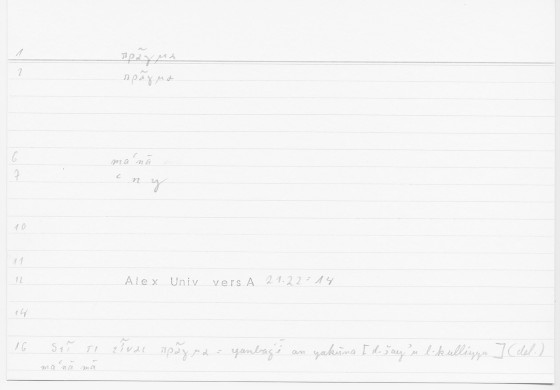 1 πρᾶγμα
2 πρᾶγμα
6 ma'nā
7 ʿ n y
10
11
12 Alex Univ vers A 21.22 = 14
14
16 δεῖ τι εἶναι πρᾶγμα = yanbaġī an yakūna [d-šayʾu l-kulliyyu] (del.)
ma'nā mā